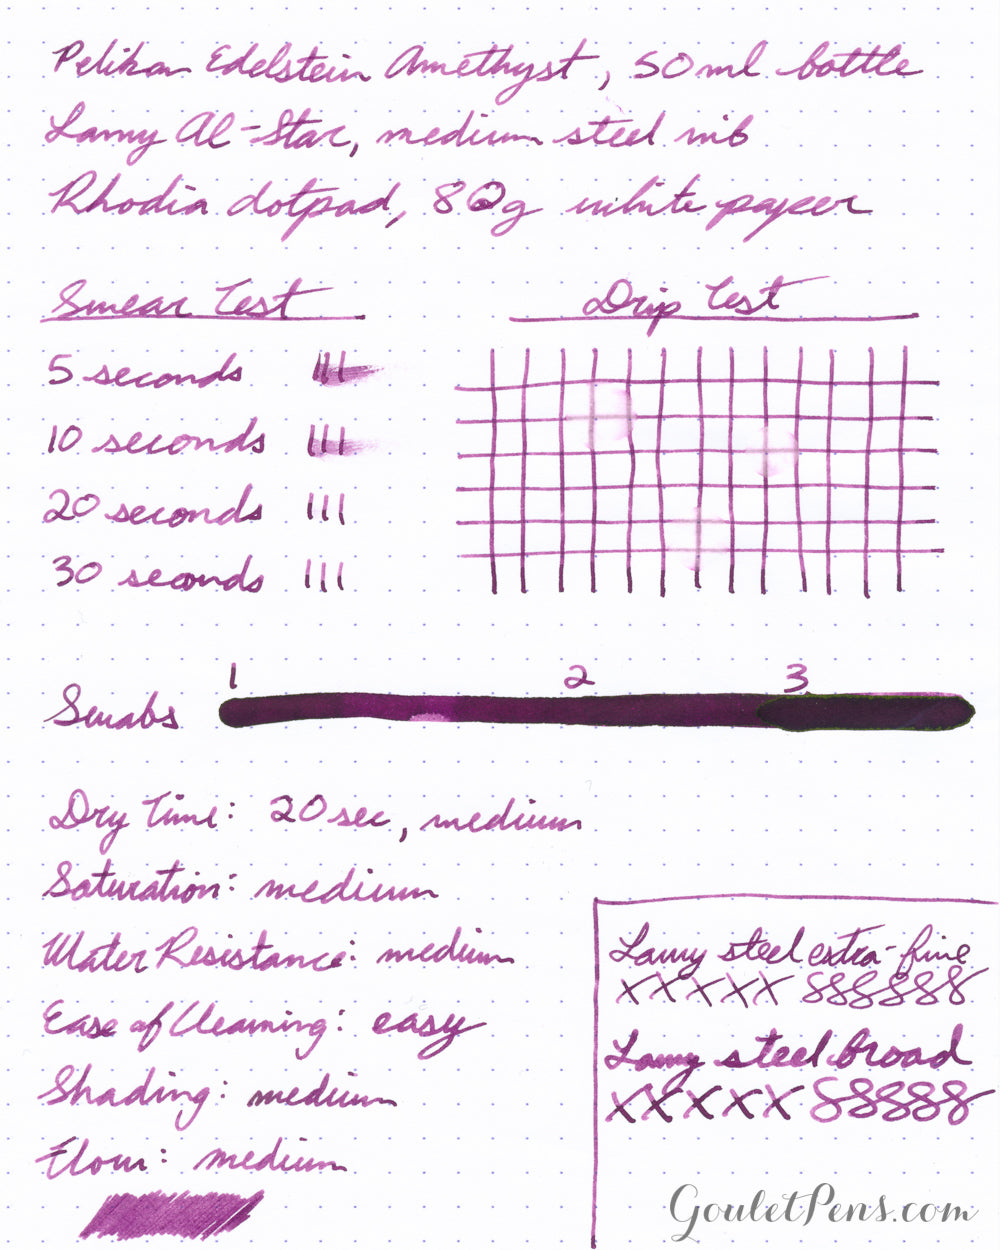 Pelikan Edelstein Amethyst, 50ml bottle
Lamy Al-Star, medium steel nib
Rhodia dotpad, 80g white paper
Smear Test
5 seconds
10 seconds
20 seconds
30 seconds
Drip Test
1 2 3
Swabs
Dry Time: 20 sec, medium
Saturation: medium
Water Resistance: medium
Ease of Cleaning: easy
Shading: medium
Flow: medium
Lamy steel extra-fine
xxxxx 888888
Lamy steel broad
xxxxx 88888
GouletPens.com